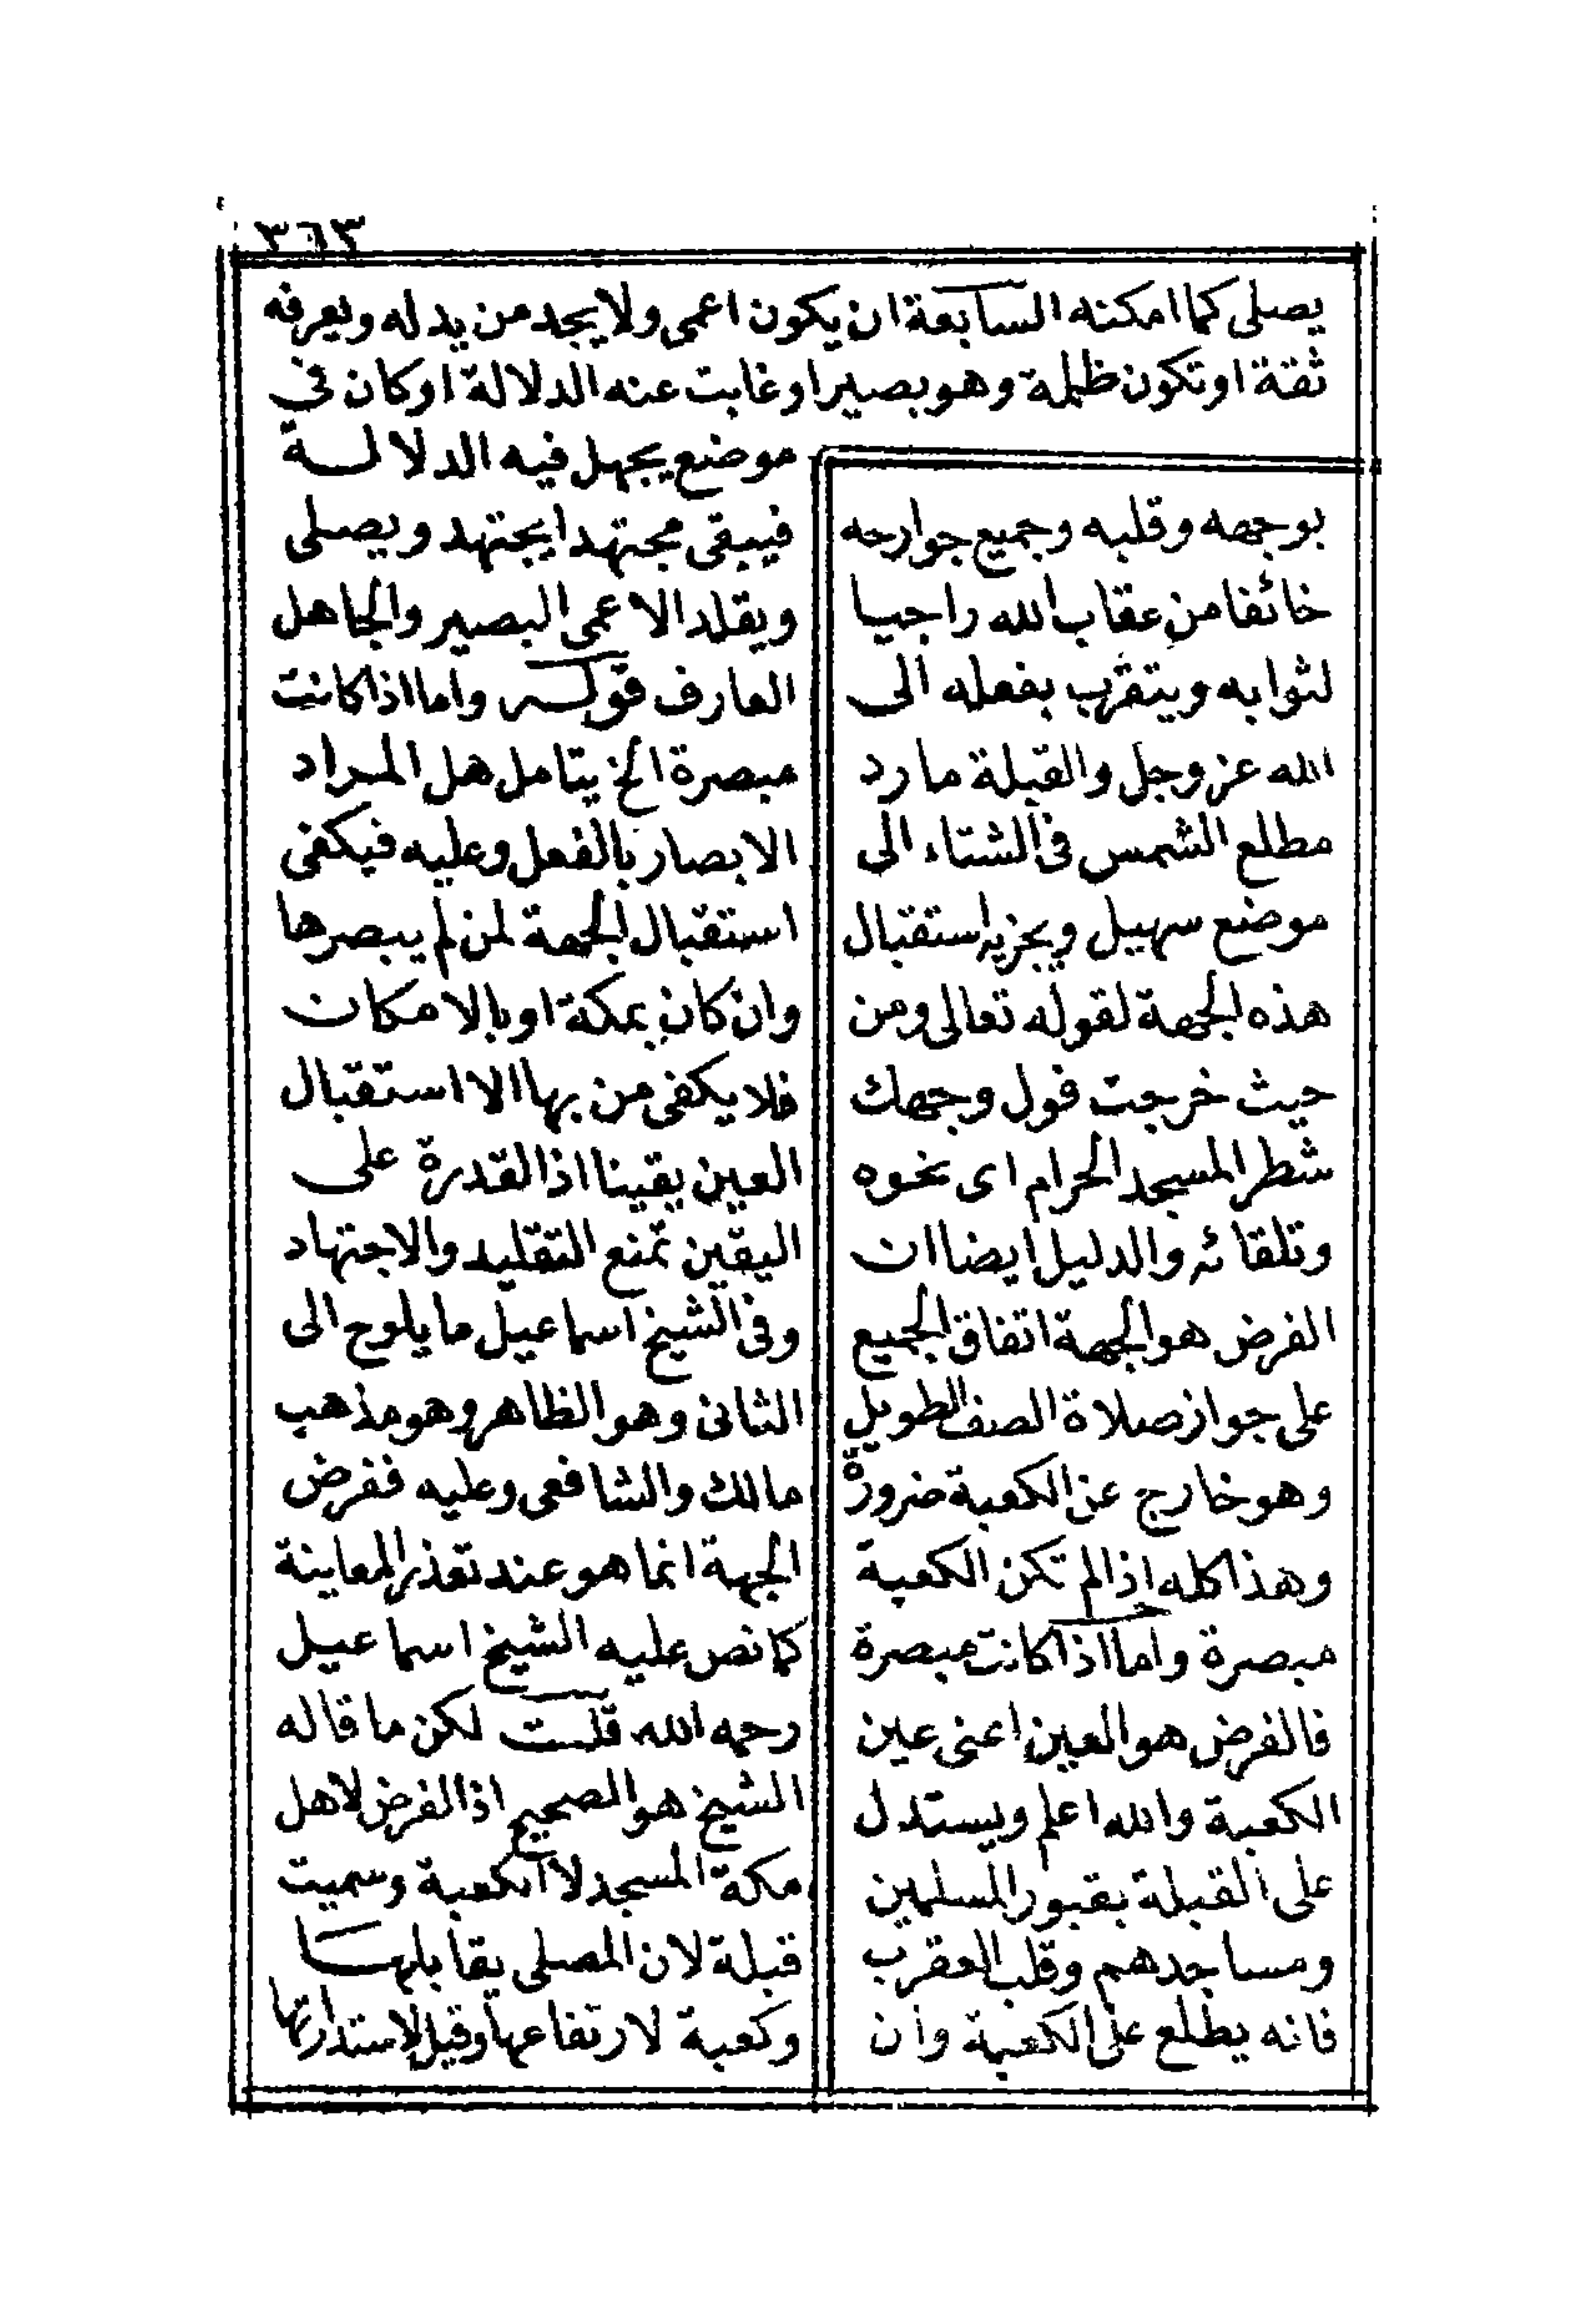 ٣٦٣
يصلى كما امكنه السابعة ان يكون اعمى ولا يجد من يدله ويعرفه
ثقة او تكون ظلمة وهو بصير او غابت عنه الدلالة او كان في
موضع يجهل فيه الدلالة
فيبقى مجتهدا يجتهد ويصلى
ويقلد الاعمى البصير والجاهل
العارف قوله واما اذا كانت
مبصرة الخ يتامل هل المراد
الابصار بالفعل وعليه فيكفى
استقبال الجهة لمن لم يبصرها
وان كان بمكة او بالامكان
فلا يكفى من بها الا استقبال
العين يقينا اذ القدرة على
اليقين تمنع التقليد والاجتهاد
وفى الشيخ اسماعيل ما يلوح الى
الثانى وهو الظاهر وهو مذهب
مالك والشافعى وعليه ففرض
الجهة انما هو عند تعذر المعاينة
كما نص عليه الشيخ اسماعيل
رحمه الله قلت لكن ما قاله
الشيخ هو الصحيح اذ الفرض لاهل
مكة المسجد لا الكعبة وسميت
قبلة لان المصلى يقابلها
وكعبة لارتفاعها وقيل لاستدارتها
بوجهه وقلبه وجميع جوارحه
خائفا من عقاب الله راجيا
لثوابه ويتقرب بفعله الى
الله عز وجل والقبلة ما رد
مطلع الشمس فى الشتاء الى
موضع سهيل ويجزيه استقبال
هذه الجهة لقوله تعالى ومن
حيث خرجت فول وجهك
شطر المسجد الحرام اى نحوه
وتلقائه والدليل ايضا ان
الفرض هو الجهة اتفاق الجميع
على جواز صلاة الصف الطويل
وهو خارج عن الكعبة ضرورة
وهذا كله اذا لم تكن الكعبة
مبصرة واما اذا كانت مبصرة
فالفرض هو العين اعنى عين
الكعبة والله اعلم ويستدل
على القبلة بقبور المسلمين
ومساجدهم وقلب العقرب
فانه يطلع على الكعبة وان